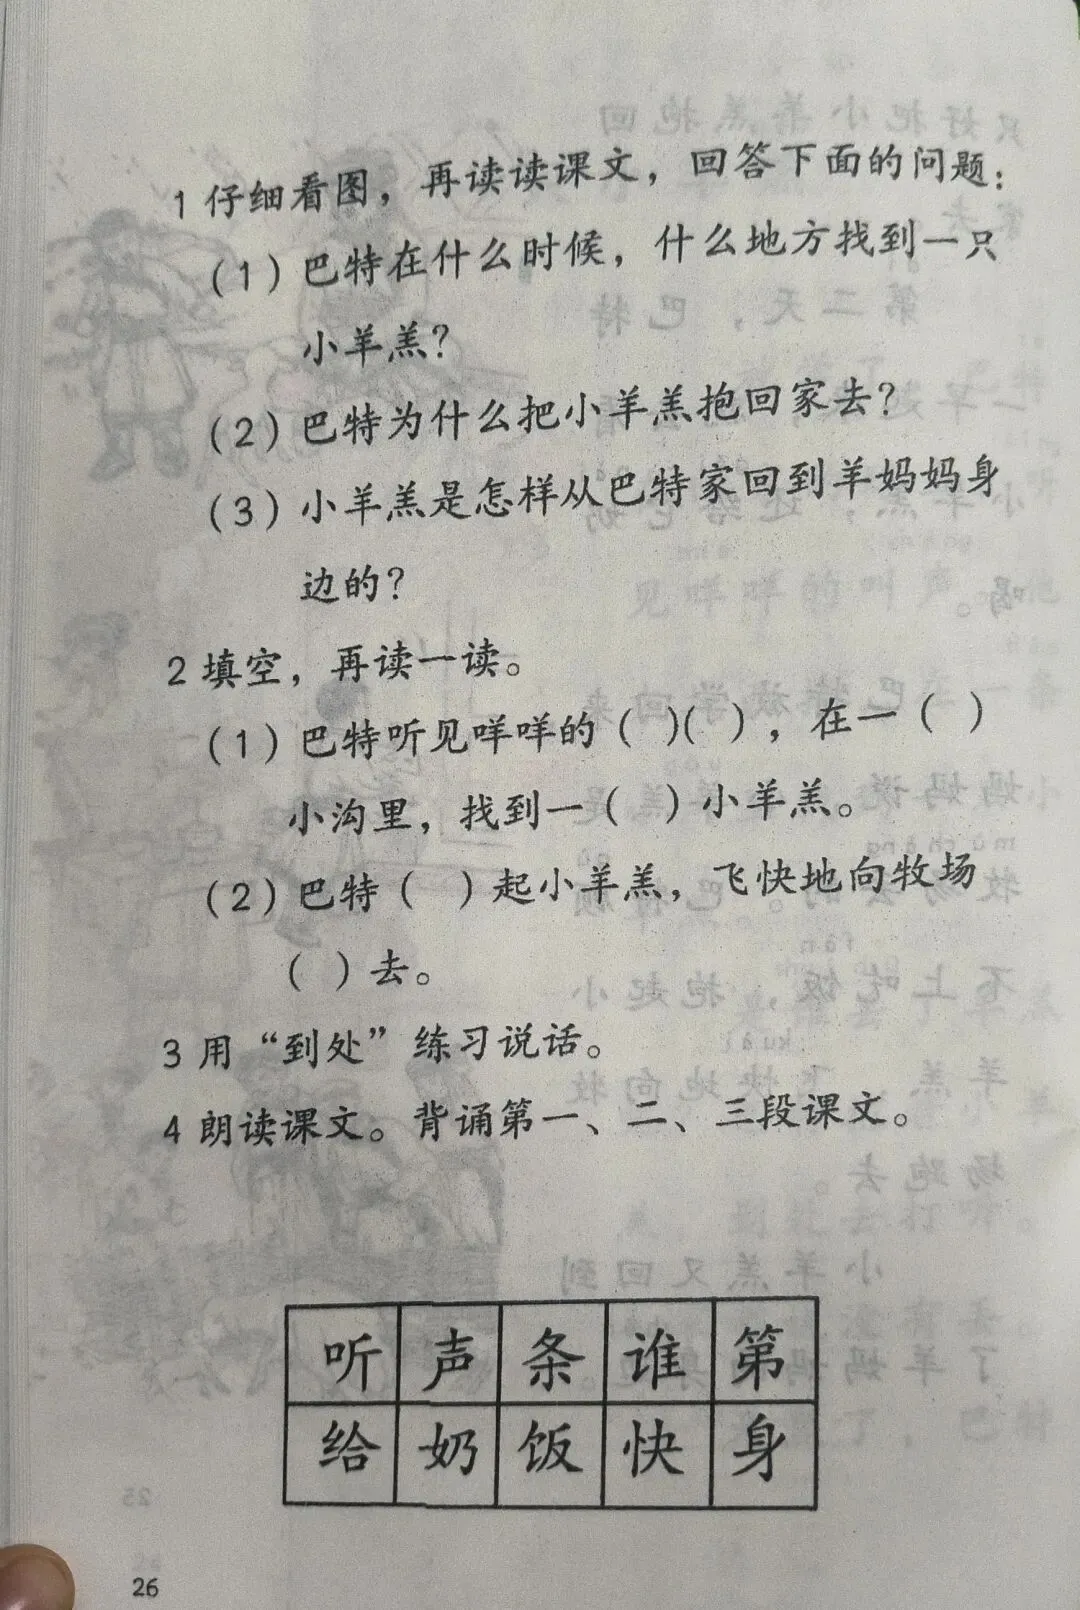 1 仔细看图，再读读课文，回答下面的问题：
（1）巴特在什么时候，什么地方找到一只
小羊羔？
（2）巴特为什么把小羊羔抱回家去？
（3）小羊羔是怎样从巴特家回到羊妈妈身
边的？
2 填空，再读一读。
（1）巴特听见咩咩的（ ）（ ），在一（ ）
小沟里，找到一（ ）小羊羔。
（2）巴特（ ）起小羊羔，飞快地向牧场
（ ）去。
3 用“到处”练习说话。
4 朗读课文。背诵第一、二、三段课文。
听 声 条 谁 第
给 奶 饭 快 身
26